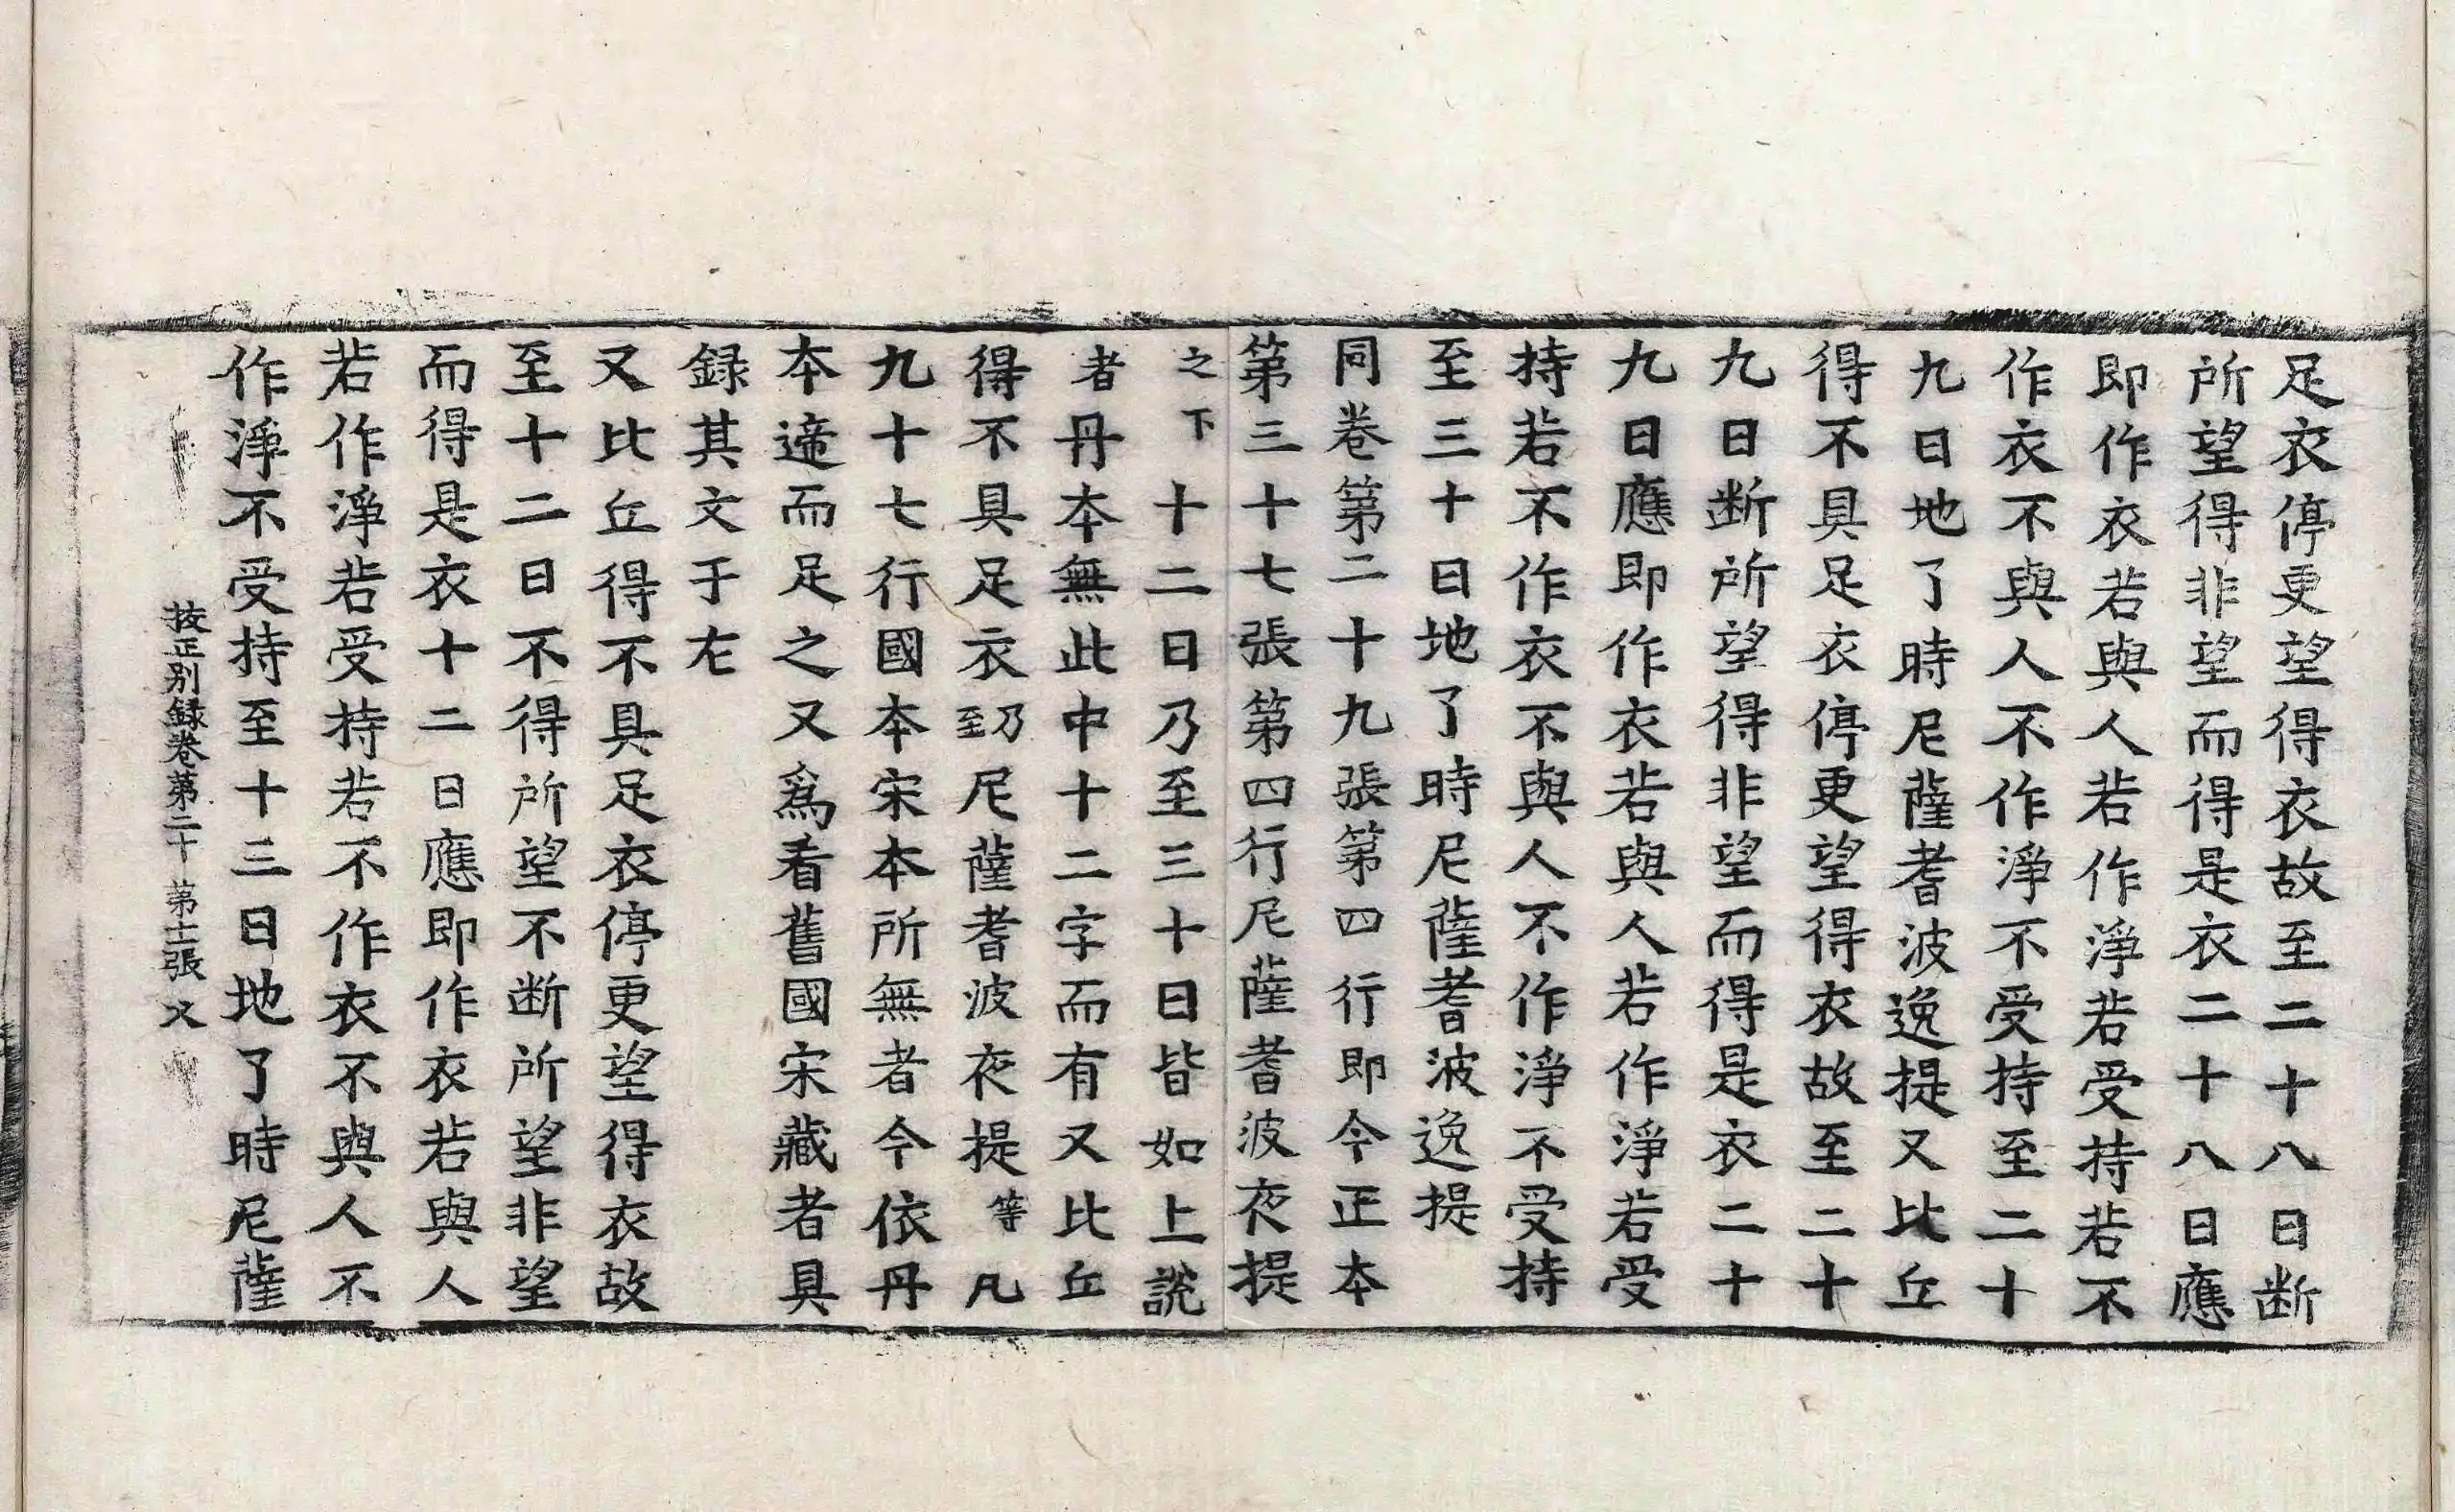 足衣停更望得衣故至二十八日断
所望得非望而得是衣二十八日應
即作衣若與人若作淨若受持若不
作衣不與人不作淨不受持至二十
九日地了時尼薩耆波逸提又比丘
得不具足衣停更望得衣故至二十
九日断所望得非望而得是衣二十
九日應即作衣若與人若作淨若受
持若不作衣不與人不作淨不受持
至三十日地了時尼薩耆波逸提
同卷第二十九張第四行即今正本
第三十七張第四行尼薩耆波夜提
之下十二日乃至三十日皆如上說
者丹本無此中十二字而有又比丘
得不具足衣乃至尼薩耆波夜提等凡
九十七行國本宋本所無者今依丹
本遆而足之又爲看舊國宋藏者具
録其文于左
又比丘得不具足衣停更望得衣故
至十二日不得所望不断所望非望
而得是衣十二日應即作衣若與人
若作淨若受持若不作衣不與人不
作淨不受持至十三日地了時尼薩
挍正别録卷第二十 第十二張 乂